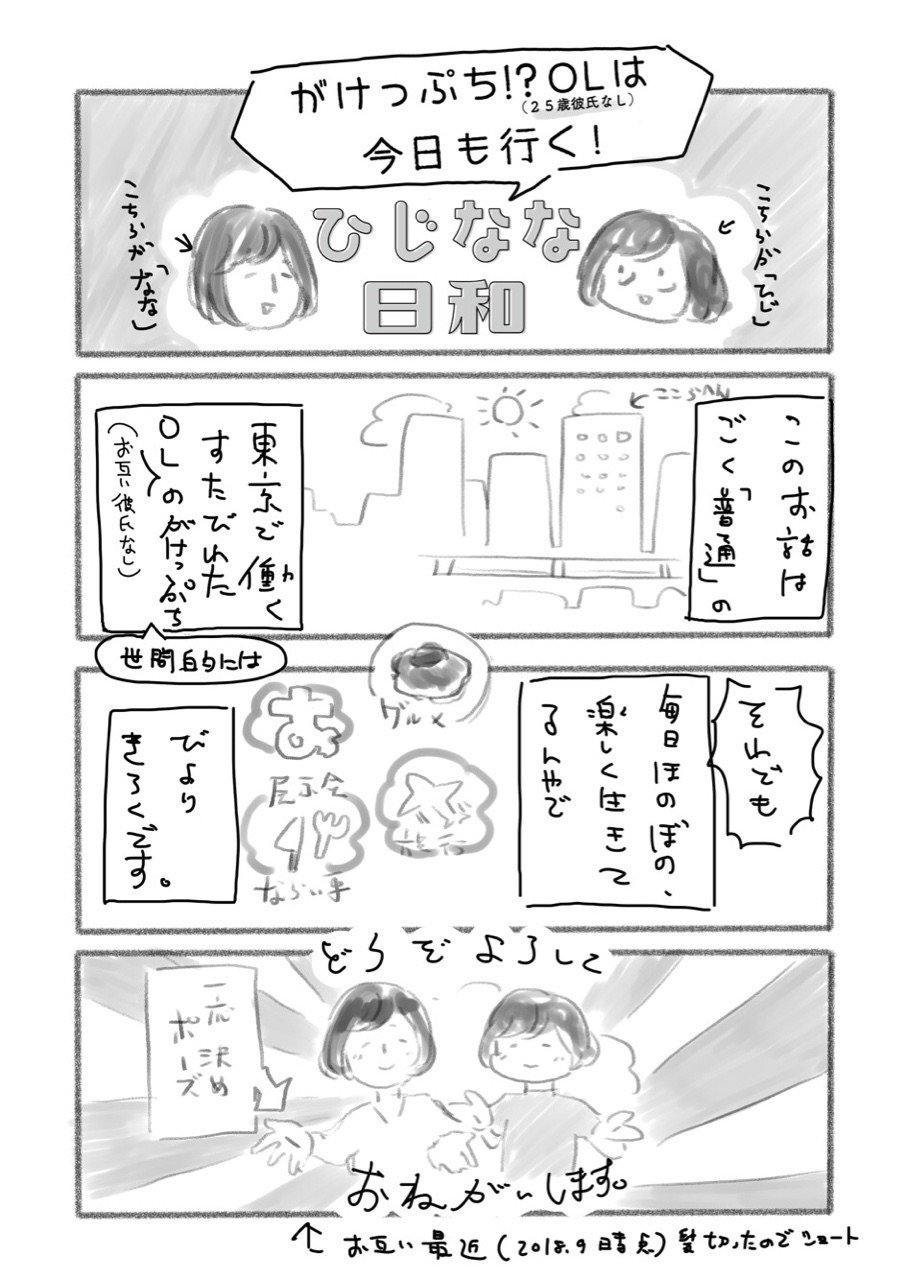 がけっぷち!?OLは
(25歳彼氏なし)
今日も行く!
ひじなな
日和
こちらが「ひじ」
こちらが「なな」
ここらへん
このお話は
ごく「普通」の
東京で働く
すたびれた
OLのがけっぷち
(お互い彼氏なし)
世間的には
それでも
毎日ほのぼの、
楽しく生きて
るんやで
グルメ
お
展示会
旅行
ならい事
びより
きろくです。
どうぞよろしく
一応決め
ポーズ
おねがいします。
↑お互い最近(2018.9時点)髪切ったのでショート